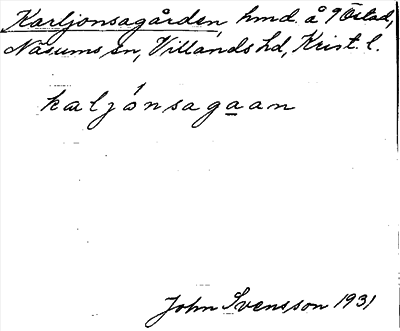 Karljonsagården, hmd. å 9 Östad,
Näsums sn, Villands hd, Krist. l.
kaljónsagaan
John Svensson 1931